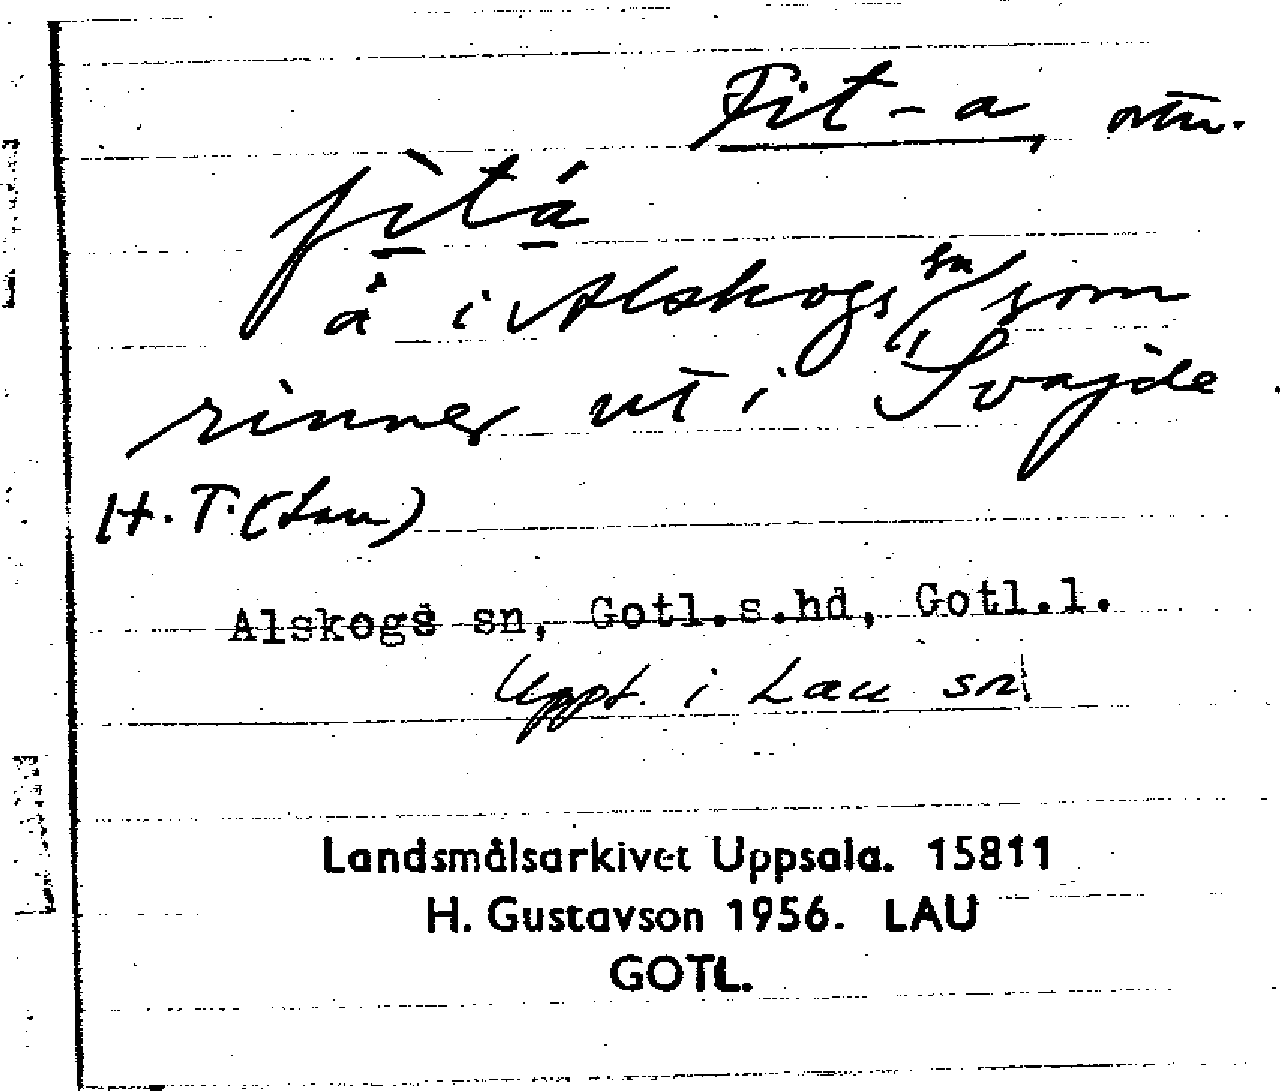 Fit-a, ortn.
fìtá
å i Alskogs sn/ som
rinner ut i Svajde
H.T. (Lau)
Alskogs sn, Gotl.s.hd, Gotl.l.
Uppt. i Lau sn
Landsmålsarkivet Uppsala. 15811
H. Gustavson 1956. LAU
GOTL.